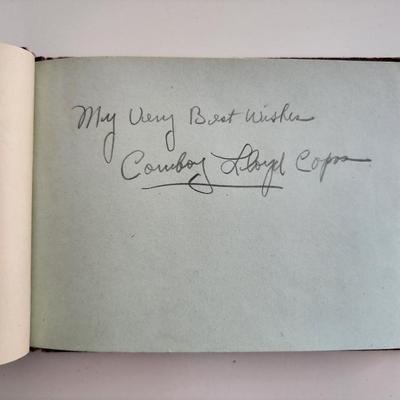 My Very Best Wishes
Cowboy Lloyd Copas